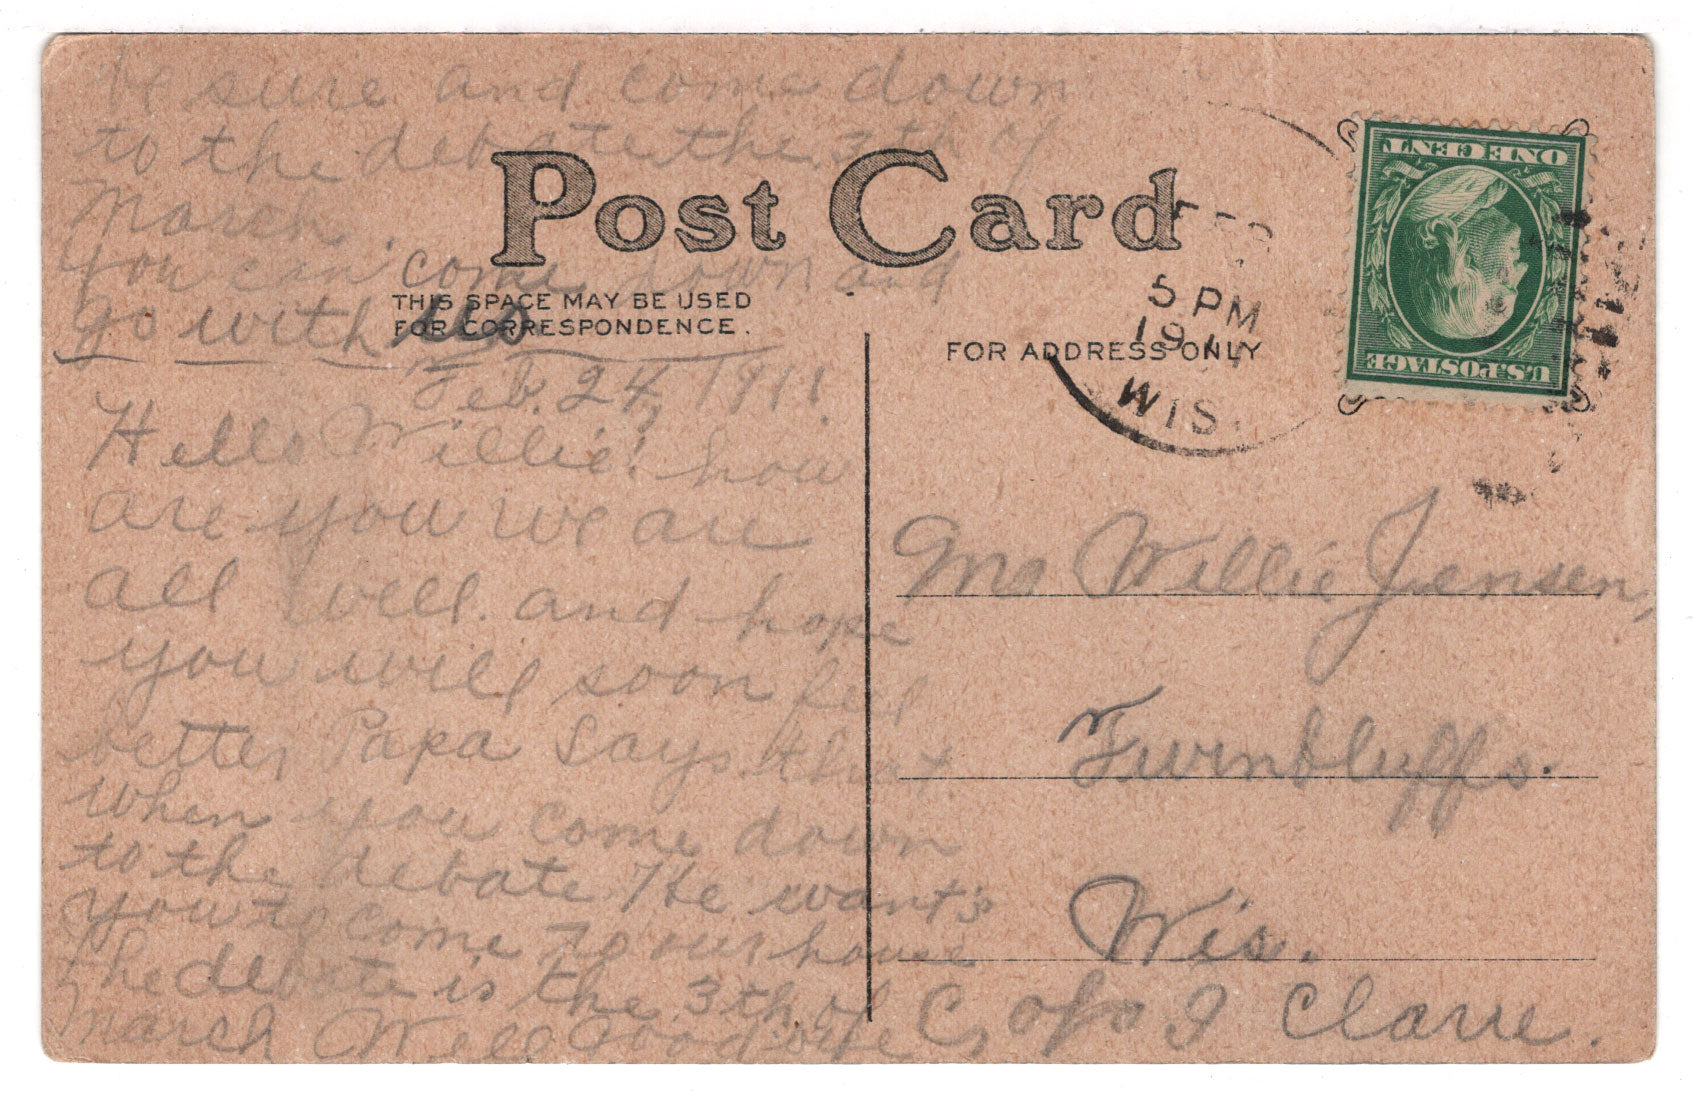 be sure and come down
to the debate the 3th of
March.
You can come down and
go with us
POST CARD
THIS SPACE MAY BE USED
FOR CORRESPONDENCE.
FOR ADDRESS ONLY
Feb. 24, 1911.
Hello Willie! how
are you we are
all well. and hope
you will soon feel
better Papa Says that
when you come down
to the debate He want's
you to come to our house
the debate is the 3th of
March Well Good bye
FEB
5 PM
1911
WIS.
ONE CENT
U.S. POSTAGE
Mr Willie Jensen,
Twinbluffs.
Wis.
C, of o I Clarre.